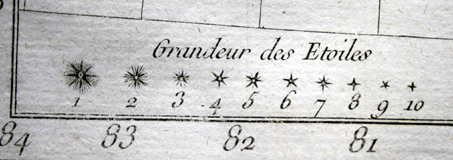 Grandeur des Etoiles
1 2 3 4 5 6 7 8 9 10
84 83 82 81